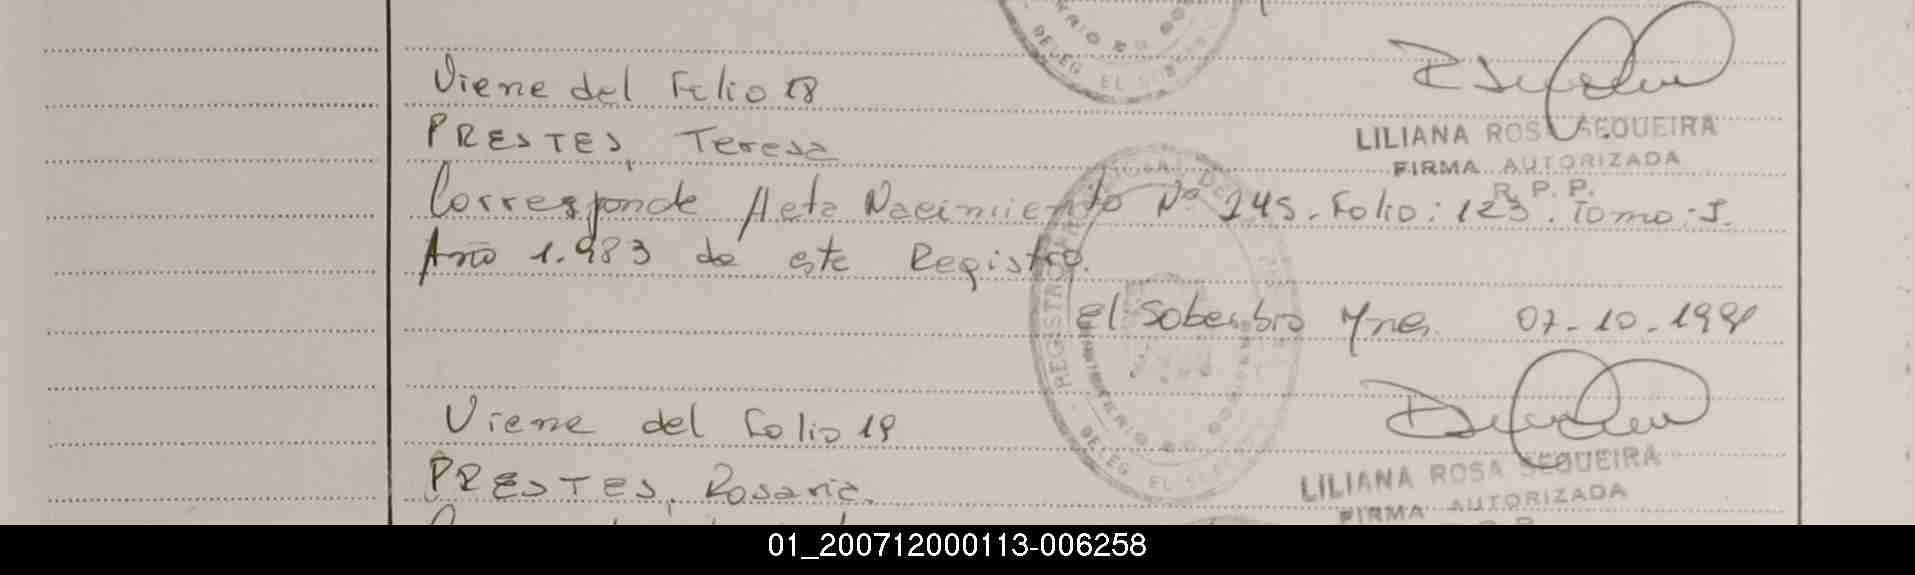 Viene del Folio 18
PRESTES, Teresa
LILIANA ROSA SEQUEIRA
FIRMA AUTORIZADA
R. P. P.
Corresponde Acta Nacimiento Nº 245. Folio: 123. Tomo: I.
Año 1.983 de este Registro.
El Soberbio Mnes. 07-10-1991
Viene del Folio 19
PRESTES, Rosaria.
LILIANA ROSA SEQUEIRA
FIRMA AUTORIZADA
01_200712000113-006258